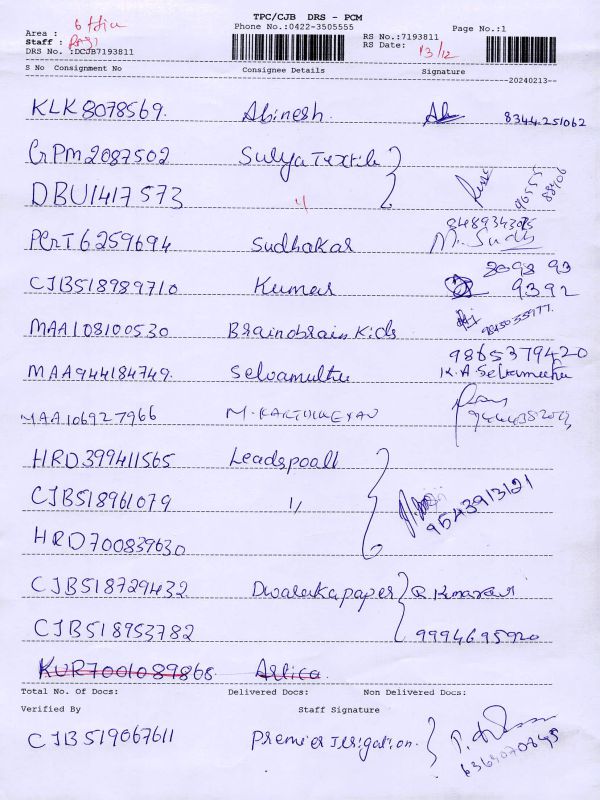 TPC/CJB DRS - PCM
Phone No.:0422-3505555
Area : 6 
Staff :
DRS No. :DCJB7193811
RS No.:7193811
RS Date: 13/12
Page No.:1
S No Consignment No Consignee Details Signature
20240213
KLK8078569. Abinesh. 8344.251062
GPM2087502 SuryaTextile
DBU1417573 "
PGT6259694 Sudhakar M. Sudh
CJB518989710 Kumar 9392
MAA108100530 Brainobrain Kids
MAA944184749. Selvamuthu 9865379420 K.A Selvamuthu
MAA106927966 M. KARTHIKEYAN
HRD399411565 Leadspoall
CJB518961079 " 9543913121
HRD700839630
CJB518729432 Dwarakapaper
CJB518953782 9994695920
KUR7001089868. Artica.
Total No. Of Docs: Delivered Docs: Non Delivered Docs:
Verified By Staff Signature
CJB519067611 Premier Irrigation.